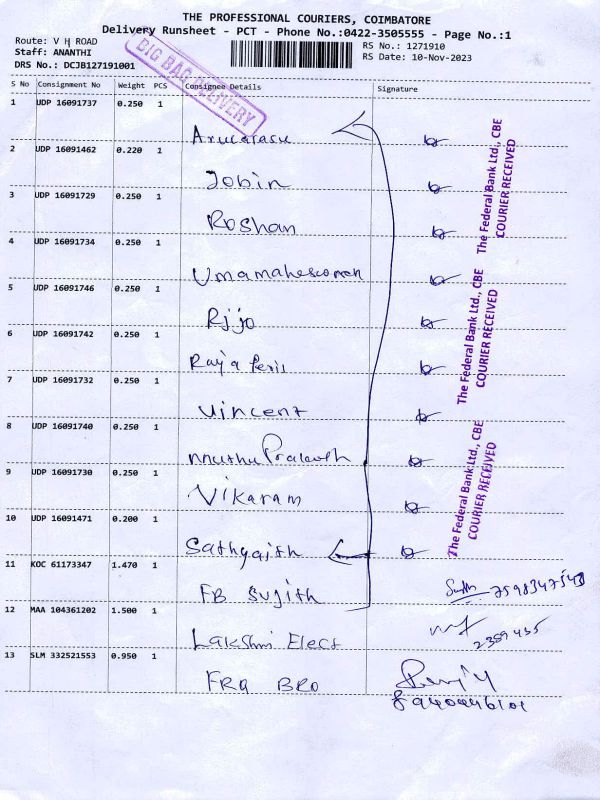 THE PROFESSIONAL COURIERS, COIMBATORE
Delivery Runsheet - PCT - Phone No.:0422-3505555 - Page No.:1
Route: V H ROAD
Staff: ANANTHI
DRS No.: DCJB127191001
RS No.: 1271910
RS Date: 10-Nov-2023
BIG BAG DELIVERY
S No Consignment No Weight PCS Consignee Details Signature
1 UDP 16091737 0.250 1
2 UDP 16091462 0.220 1 Jobin
3 UDP 16091729 0.250 1 Roshan
4 UDP 16091734 0.250 1
5 UDP 16091746 0.250 1 Rijo
6 UDP 16091742 0.250 1
7 UDP 16091732 0.250 1 Vincent
8 UDP 16091740 0.250 1
9 UDP 16091730 0.250 1 Vikaram
10 UDP 16091471 0.200 1
11 KOC 61173347 1.470 1 FB Sujith
12 MAA 104361202 1.500 1 Lakshmi Elect
13 SLM 332521553 0.950 1 BRO
The Federal Bank Ltd., CBE
COURIER RECEIVED
The Federal Bank Ltd., CBE
COURIER RECEIVED
The Federal Bank Ltd., CBE
COURIER RECEIVED